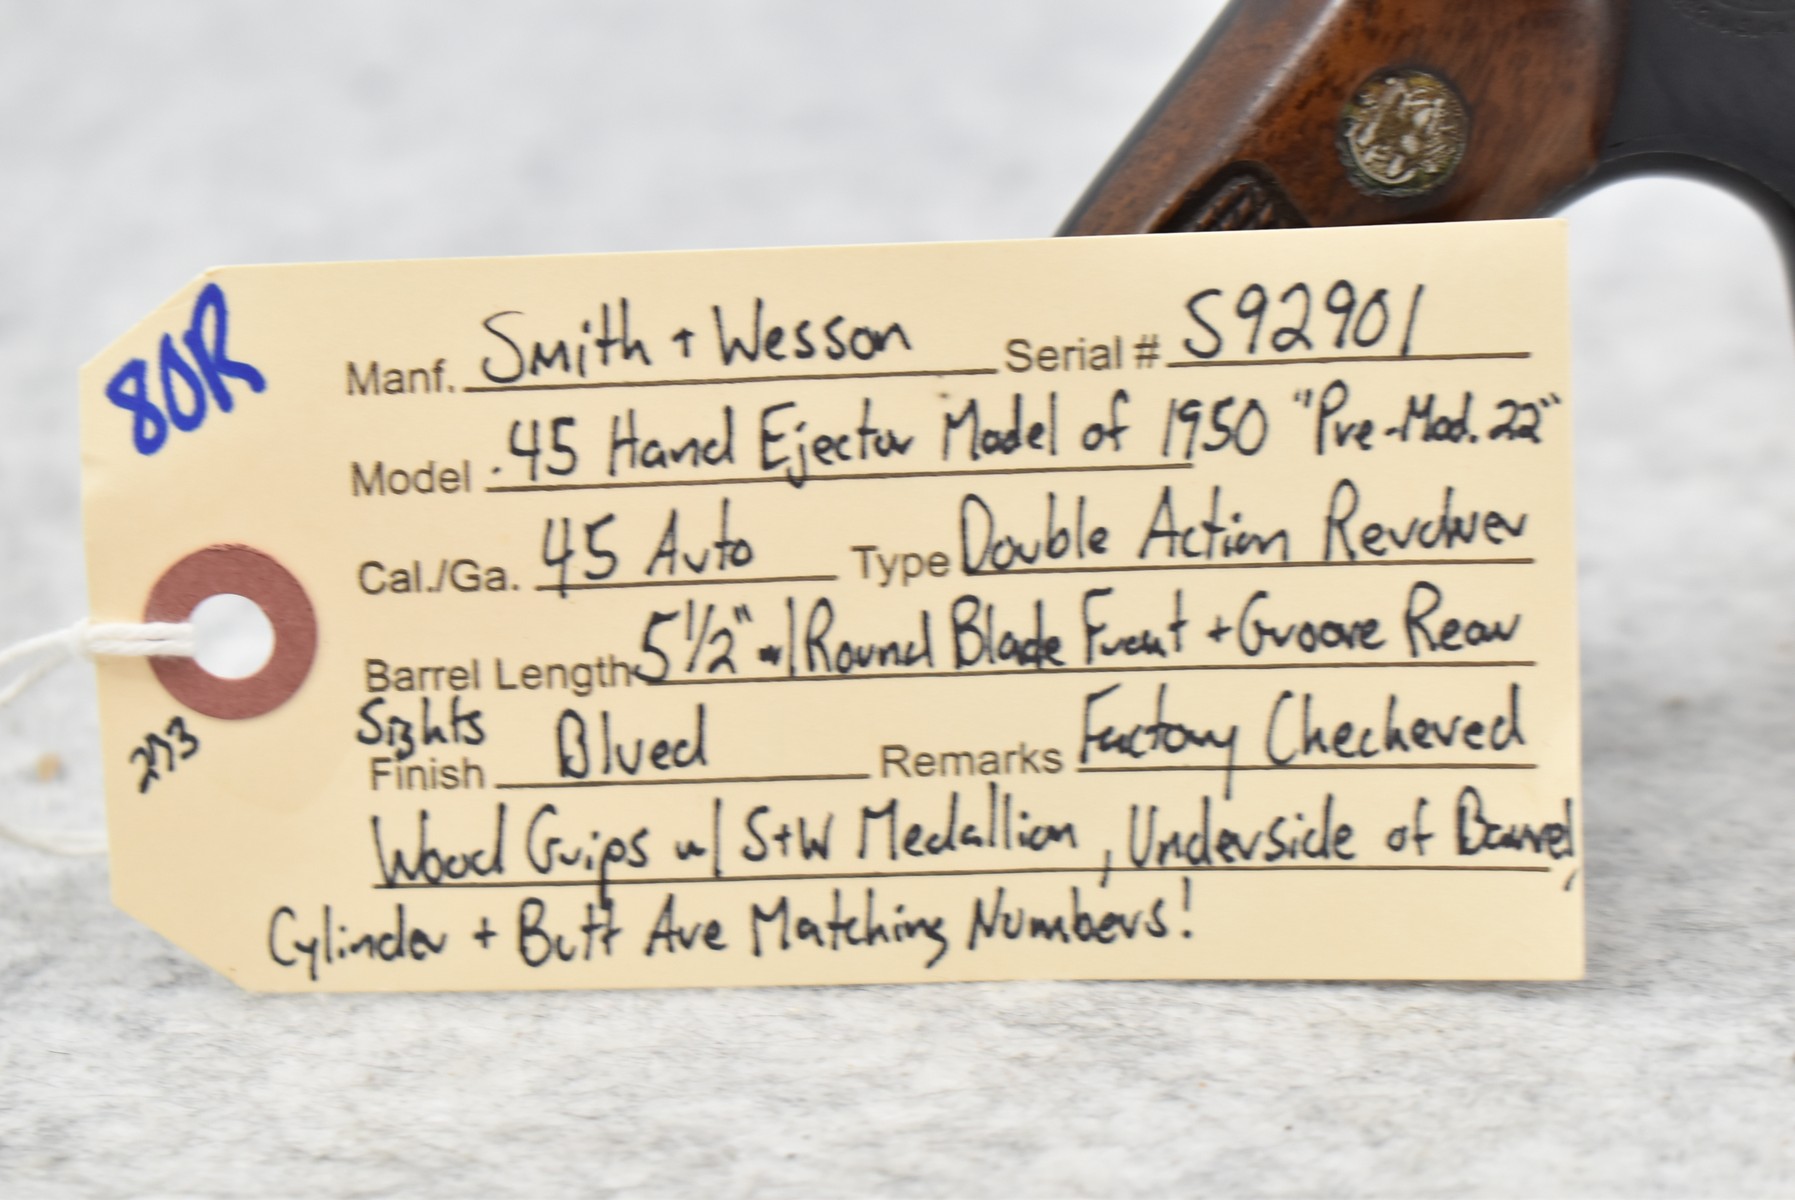 80R
Manf. Smith + Wesson Serial # S92901
Model .45 Hand Ejector Model of 1950 "Pre-Mod. 22"
Cal./Ga. 45 Auto Type Double Action Revolver
Barrel Length 5 1/2" w/ Round Blade Front + Groove Rear
Sights
Finish Blued Remarks Factory Checkered
Wood Grips w/ S+W Medallion, Underside of Barrel,
Cylinder + Butt Are Matching Numbers!
273